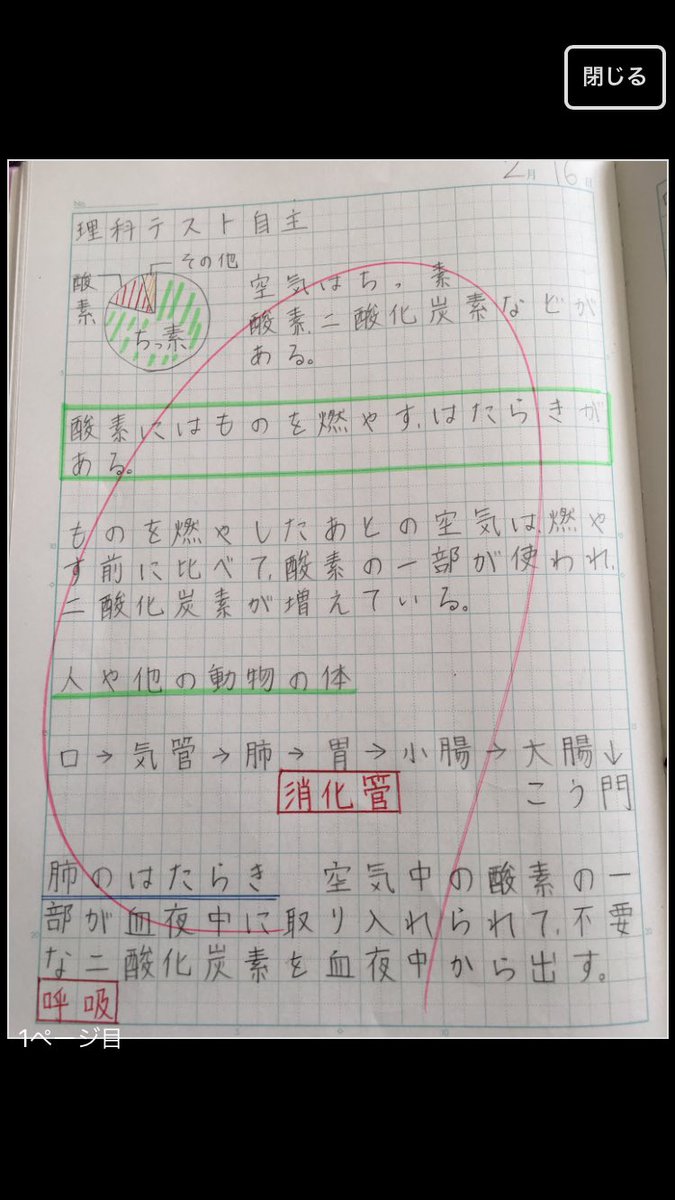 閉じる
2月16日
No.
理科テスト自主
その他
酸素
ちっ素
空気はちっ素
酸素、二酸化炭素などが
ある。
酸素にはものを燃やす、はたらきが
ある。
ものを燃やしたあとの空気は、燃や
す前に比べて、酸素の一部が使われ、
二酸化炭素が増えている。
人や他の動物の体
口→気管→肺→胃→小腸→大腸↓
消化管
こう門
肺のはたらき 空気中の酸素の一
部が血夜中に取り入れられて、不要
な二酸化炭素を血夜中から出す。
呼吸
1ページ目